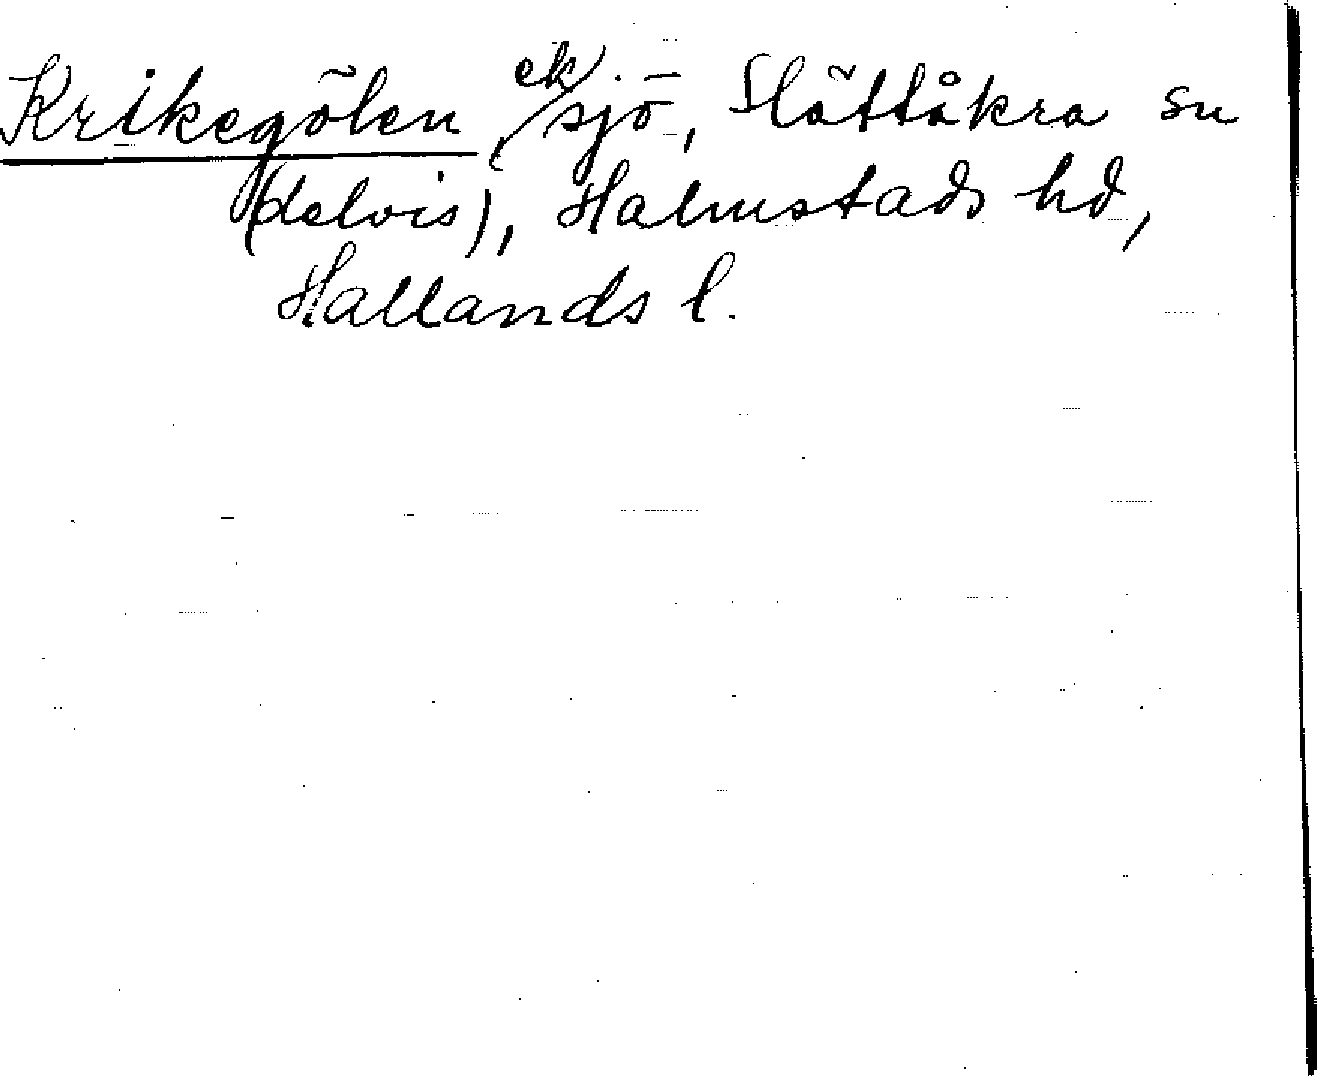 Krikegölen, ek sjö, Slättåkra sn
(delvis), Halmstads hd,
Hallands l.